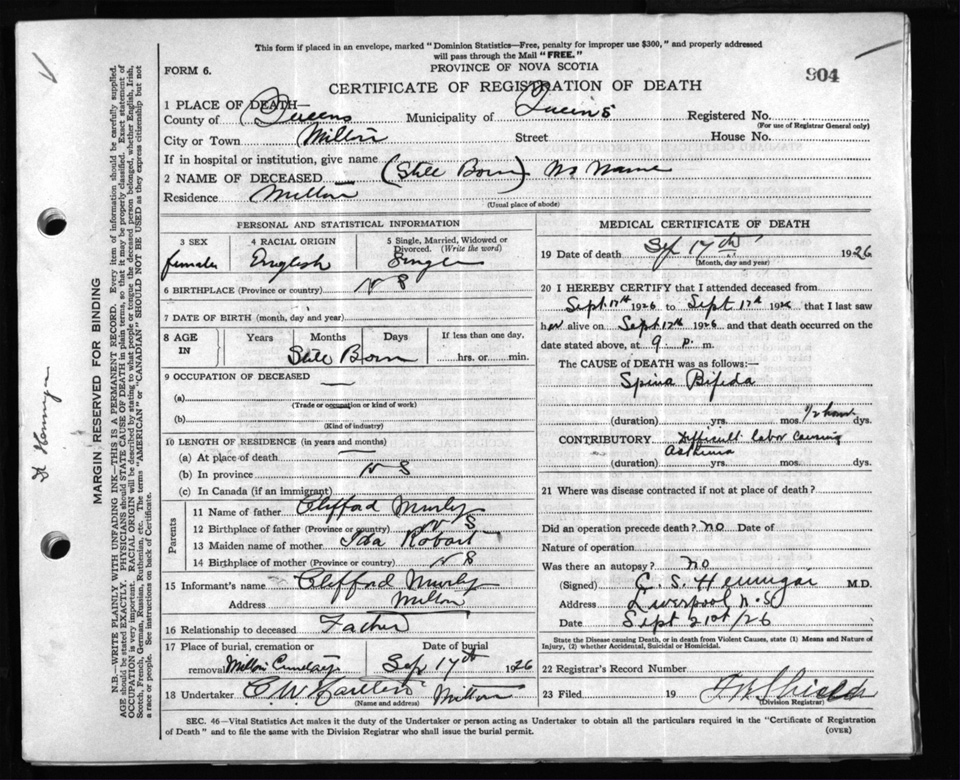 This form if placed in an envelope, marked "Dominion Statistics—Free, penalty for improper use $300," and properly addressed
will pass through the Mail "FREE."
FORM 6.
PROVINCE OF NOVA SCOTIA
904
CERTIFICATE OF REGISTRATION OF DEATH
1 PLACE OF DEATH—
County of Queens Municipality of Queens Registered No.
(For use of Registrar General only)
City or Town Milton Street House No.
If in hospital or institution, give name
2 NAME OF DECEASED (Still Born) No Name
Residence Milton
(Usual place of abode)
PERSONAL AND STATISTICAL INFORMATION
3 SEX 4 RACIAL ORIGIN 5 Single, Married, Widowed or Divorced. (Write the word)
female English Single
6 BIRTHPLACE (Province or country) N S
7 DATE OF BIRTH (month, day and year)
8 AGE IN Years Months Days If less than one day,
Still Born hrs. or min.
9 OCCUPATION OF DECEASED
(a)
(Trade or occupation or kind of work)
(b)
(Kind of industry)
10 LENGTH OF RESIDENCE (in years and months)
(a) At place of death
(b) In province N S
(c) In Canada (if an immigrant)
Parents
11 Name of father Clifford
12 Birthplace of father (Province or country) N S
13 Maiden name of mother Ida Robart
14 Birthplace of mother (Province or country) N S
15 Informant's name Clifford
Address Milton
16 Relationship to deceased Father
17 Place of burial, cremation or removal Date of burial
Milton Sep 17th 1926
18 Undertaker C. W. Milton
(Name and address)
MEDICAL CERTIFICATE OF DEATH
19 Date of death Sep 17th 1926
(Month, day and year)
20 I HEREBY CERTIFY that I attended deceased from
Sept 17th 1926 to Sept 17th 1926 that I last saw
her alive on Sept 17th 1926 and that death occurred on
date stated above, at 9 p. m.
The CAUSE of DEATH was as follows:—
Spina Bifida
(duration) yrs. mos. 1/2 hour dys.
CONTRIBUTORY Difficult labor causing
(duration) yrs. mos. dys.
21 Where was disease contracted if not at place of death?
Did an operation precede death? no Date of
Nature of operation
Was there an autopsy? no
(Signed) C. S. Hennigar M.D.
Address Liverpool N.S
Date Sept 21st/26
State the Disease causing Death, or in death from Violent Causes, state (1) Means and Nature of
Injury, (2) whether Accidental, Suicidal or Homicidal.
22 Registrar's Record Number
23 Filed 19 Shields
(Division Registrar)
SEC. 46—Vital Statistics Act makes it the duty of the Undertaker or person acting as Undertaker to obtain all the particulars required in the "Certificate of Registration
of Death" and to file the same with the Division Registrar who shall issue the burial permit.
(OVER)
MARGIN RESERVED FOR BINDING
N.B.—WRITE PLAINLY WITH UNFADING INK—THIS IS A PERMANENT RECORD. Every item of information should be carefully supplied.
AGE should be stated EXACTLY. PHYSICIANS should STATE CAUSE OF DEATH in plain terms, so that it may be properly classified. Exact statement of
OCCUPATION is very important. RACIAL ORIGIN will be described by stating to what people or tongue the deceased person belonged, whether English, Irish,
Scotch, French, German, Russian, Ruthenian, etc. The terms "AMERICAN" or "CANADIAN" SHOULD NOT BE USED as they express citizenship but not
a race or people. See instructions on back of Certificate.